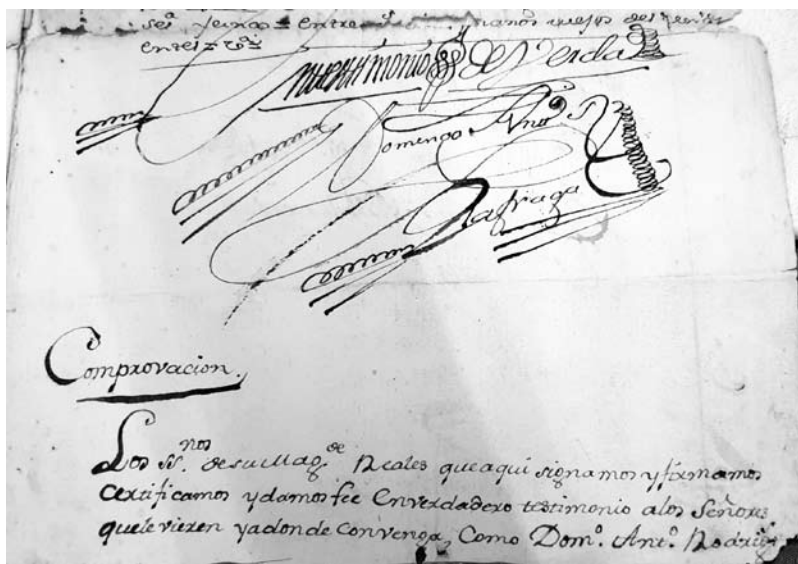 entre
en testimonio de Verdad
Domingo Antº
Comprovacion.
Los SSnos. de su Magde. Reales que aqui signamos y firmamos
certificamos y damos fee en verdadero testimonio a los Señores
que le vieren y adonde convenga, Como Domº. Antº. Rodrig